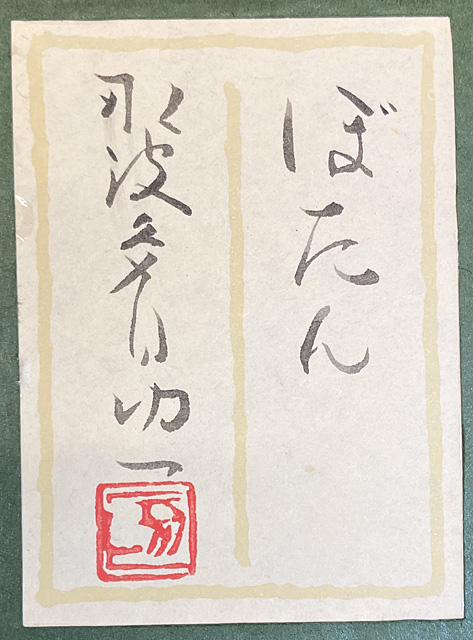 ぼたん
那波多目功一